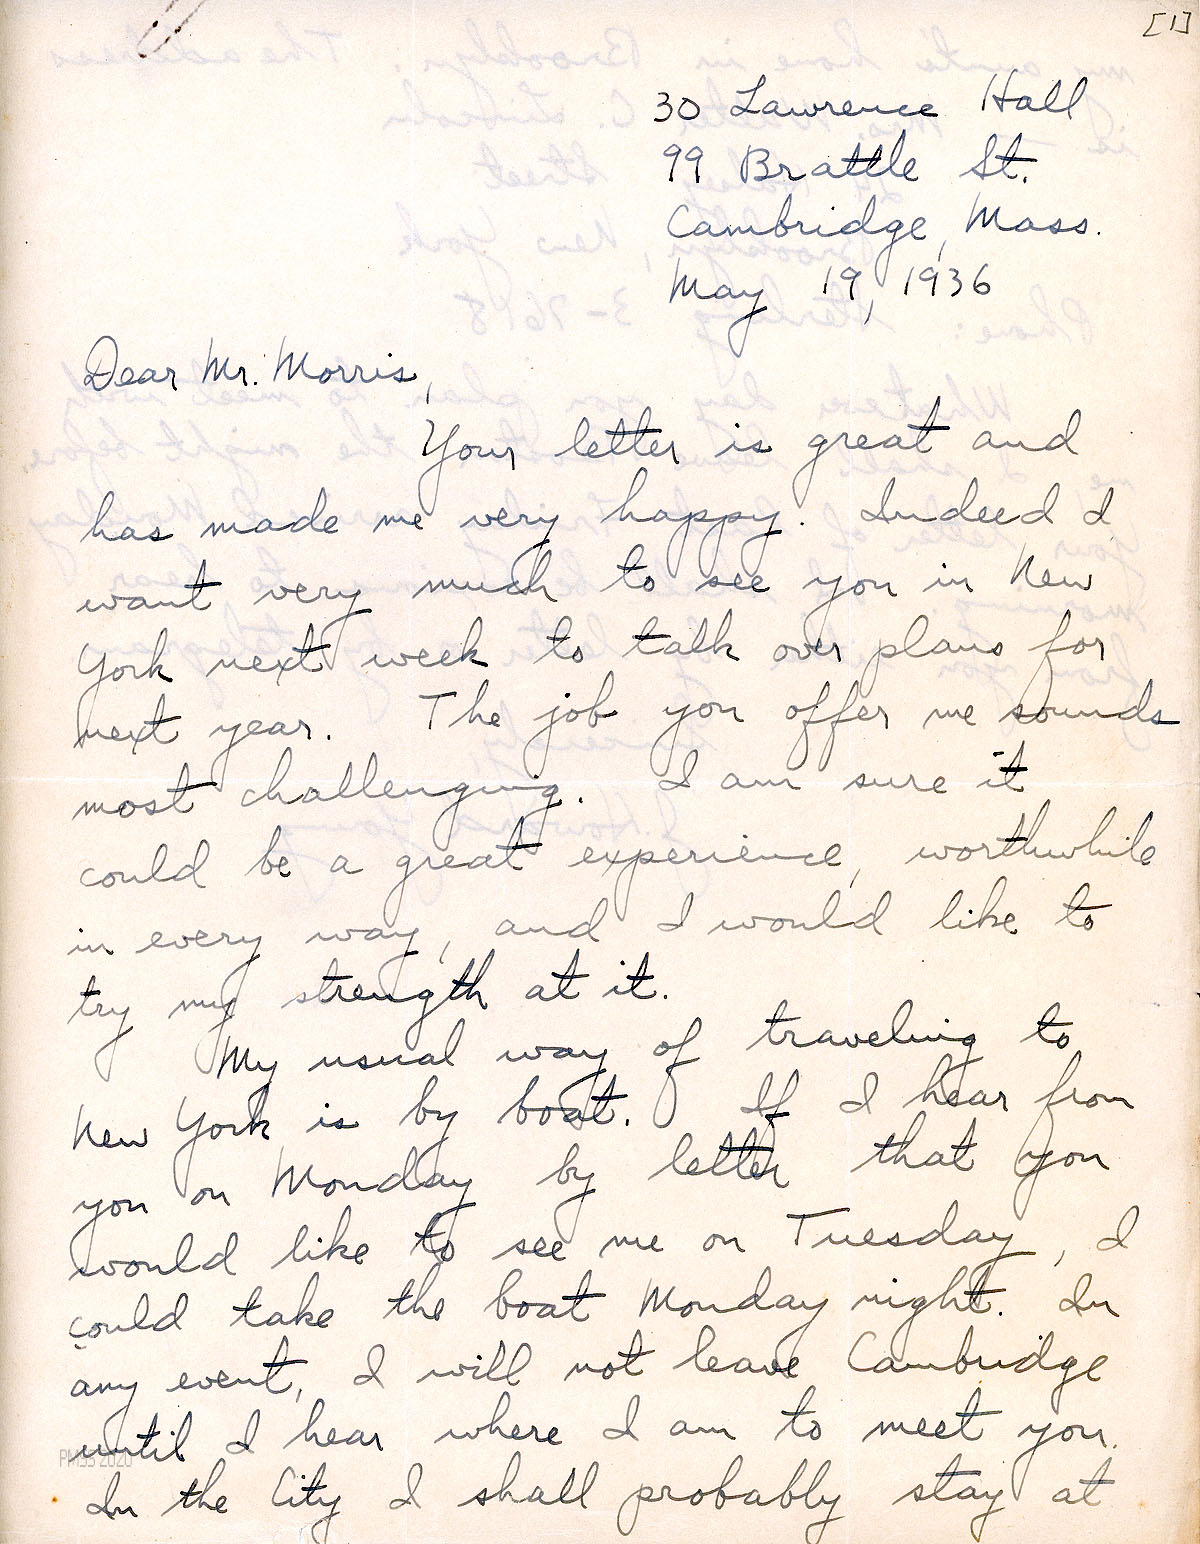 [1]
30 Lawrence Hall
99 Brattle St.
Cambridge, Mass.
May 19, 1936
Dear Mr. Morris,
Your letter is great and
has made me very happy. Indeed I
want very much to see you in New
York next week to talk over plans for
next year. The job you offer me sounds
most challenging. I am sure it
could be a great experience, worthwhile
in every way, and I would like to
try my strength at it.
My usual way of traveling to
New York is by boat. If I hear from
you on Monday by letter that you
would like to see me on Tuesday, I
could take the boat Monday night. In
any event, I will not leave Cambridge
until I hear where I am to meet you.
PMSS 2020
In the City I shall probably stay at